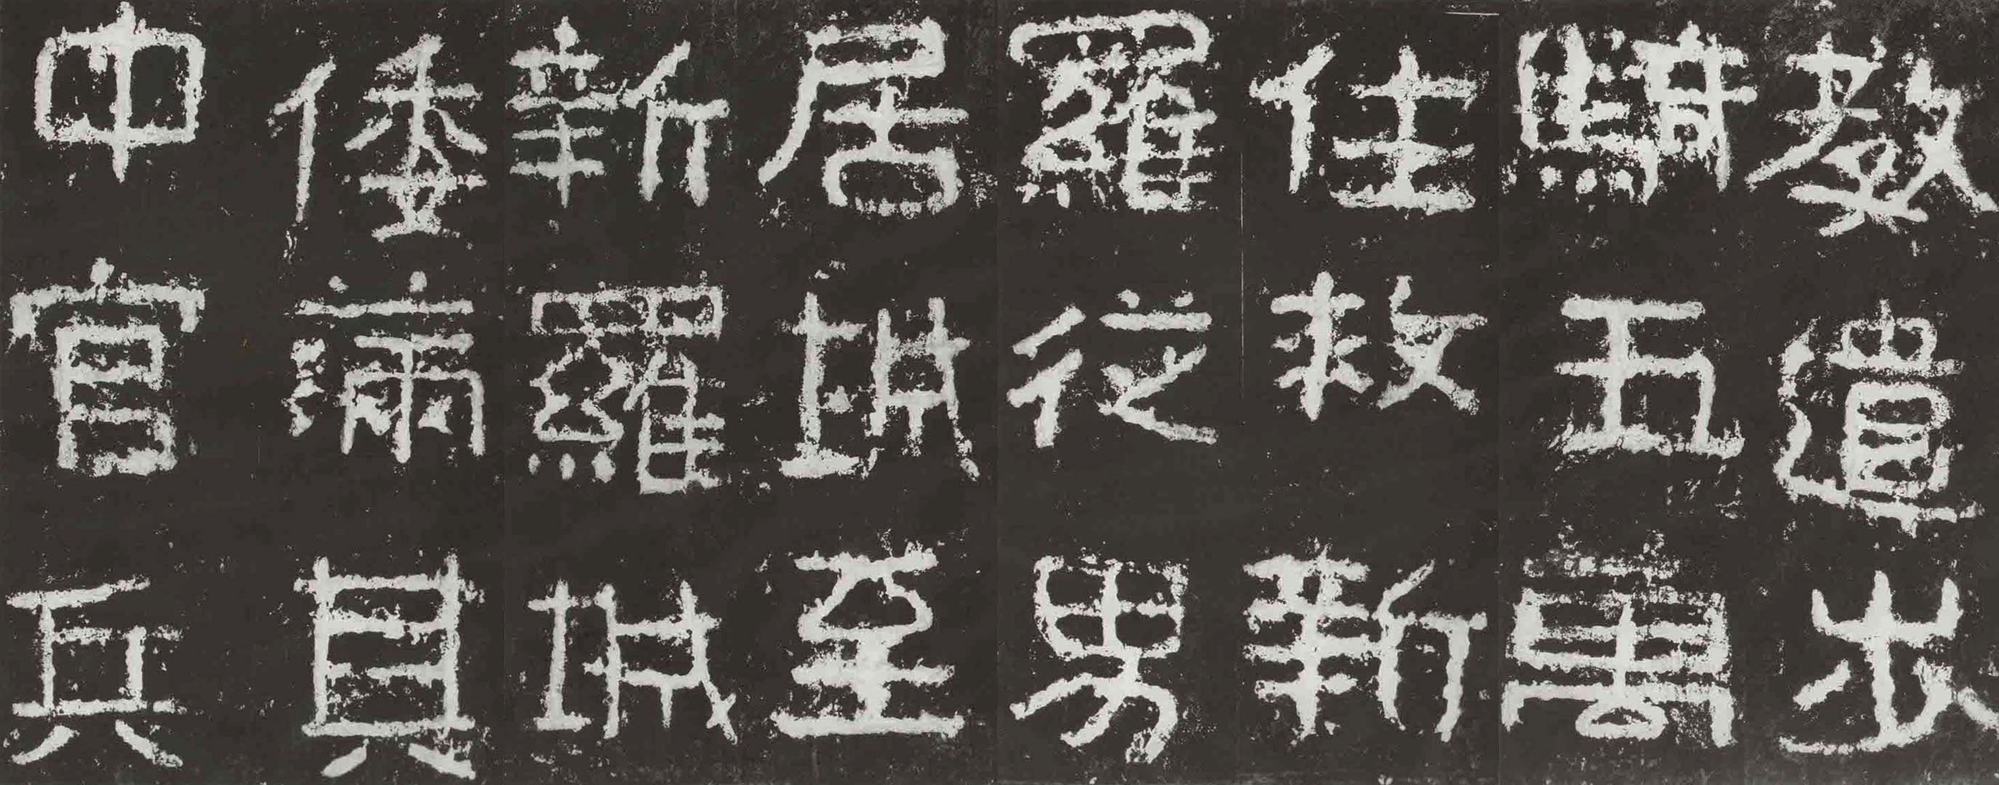 教遣步
騎五萬
住救新
羅從男
居城至
新羅城
倭滿其
中官兵